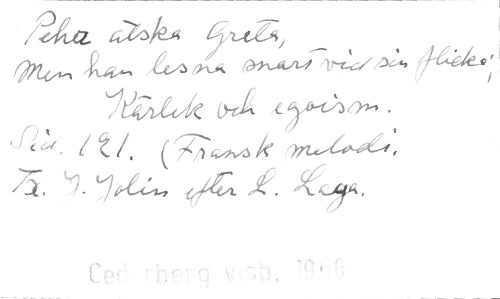 Pehr älska Greta,
Men han lesna snart vid sin flicka;
Kärlek och egoism.
Sid. 121. (Fransk melodi.
Tx. J. Jolin efter L. Laya.
Ced rberg visb. 19 6